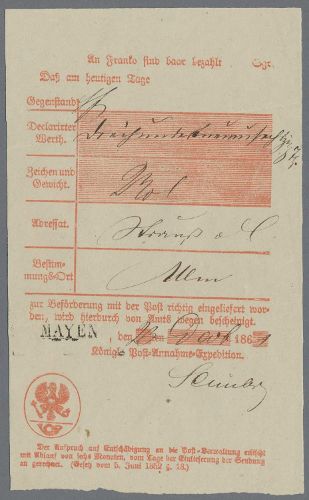 An Franko sind baar bezahlt Sgr.
Daß am heutigen Tage
Gegenstand:
Declarirter
Werth.
Zeichen und
Gewicht.
Adressat.
Bestim-
mungs-Ort
Ulm
zur Beförderung mit der Post richtig eingeliefert wor-
den, wird hierdurch von Amts wegen bescheinigt.
MAYEN, den ten 186
Königl. Post-Annahme-Expedition.
Der Anspruch auf Entschädigung an die Post-Verwaltung erlischt
mit Ablauf von sechs Monaten, vom Tage der Einlieferung der Sendung
an gerechnet. (Gesetz vom 5. Juni 1852 §. 18.)